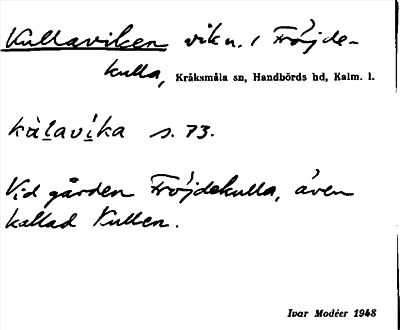 Kullaviken vik n. i Fröjde-
kulla, Kråksmåla sn, Handbörds hd, Kalm. l.
kàlavika s. 73.
Vid gården Fröjdekulla, även
kallad Kullen.
Ivar Modéer 1948